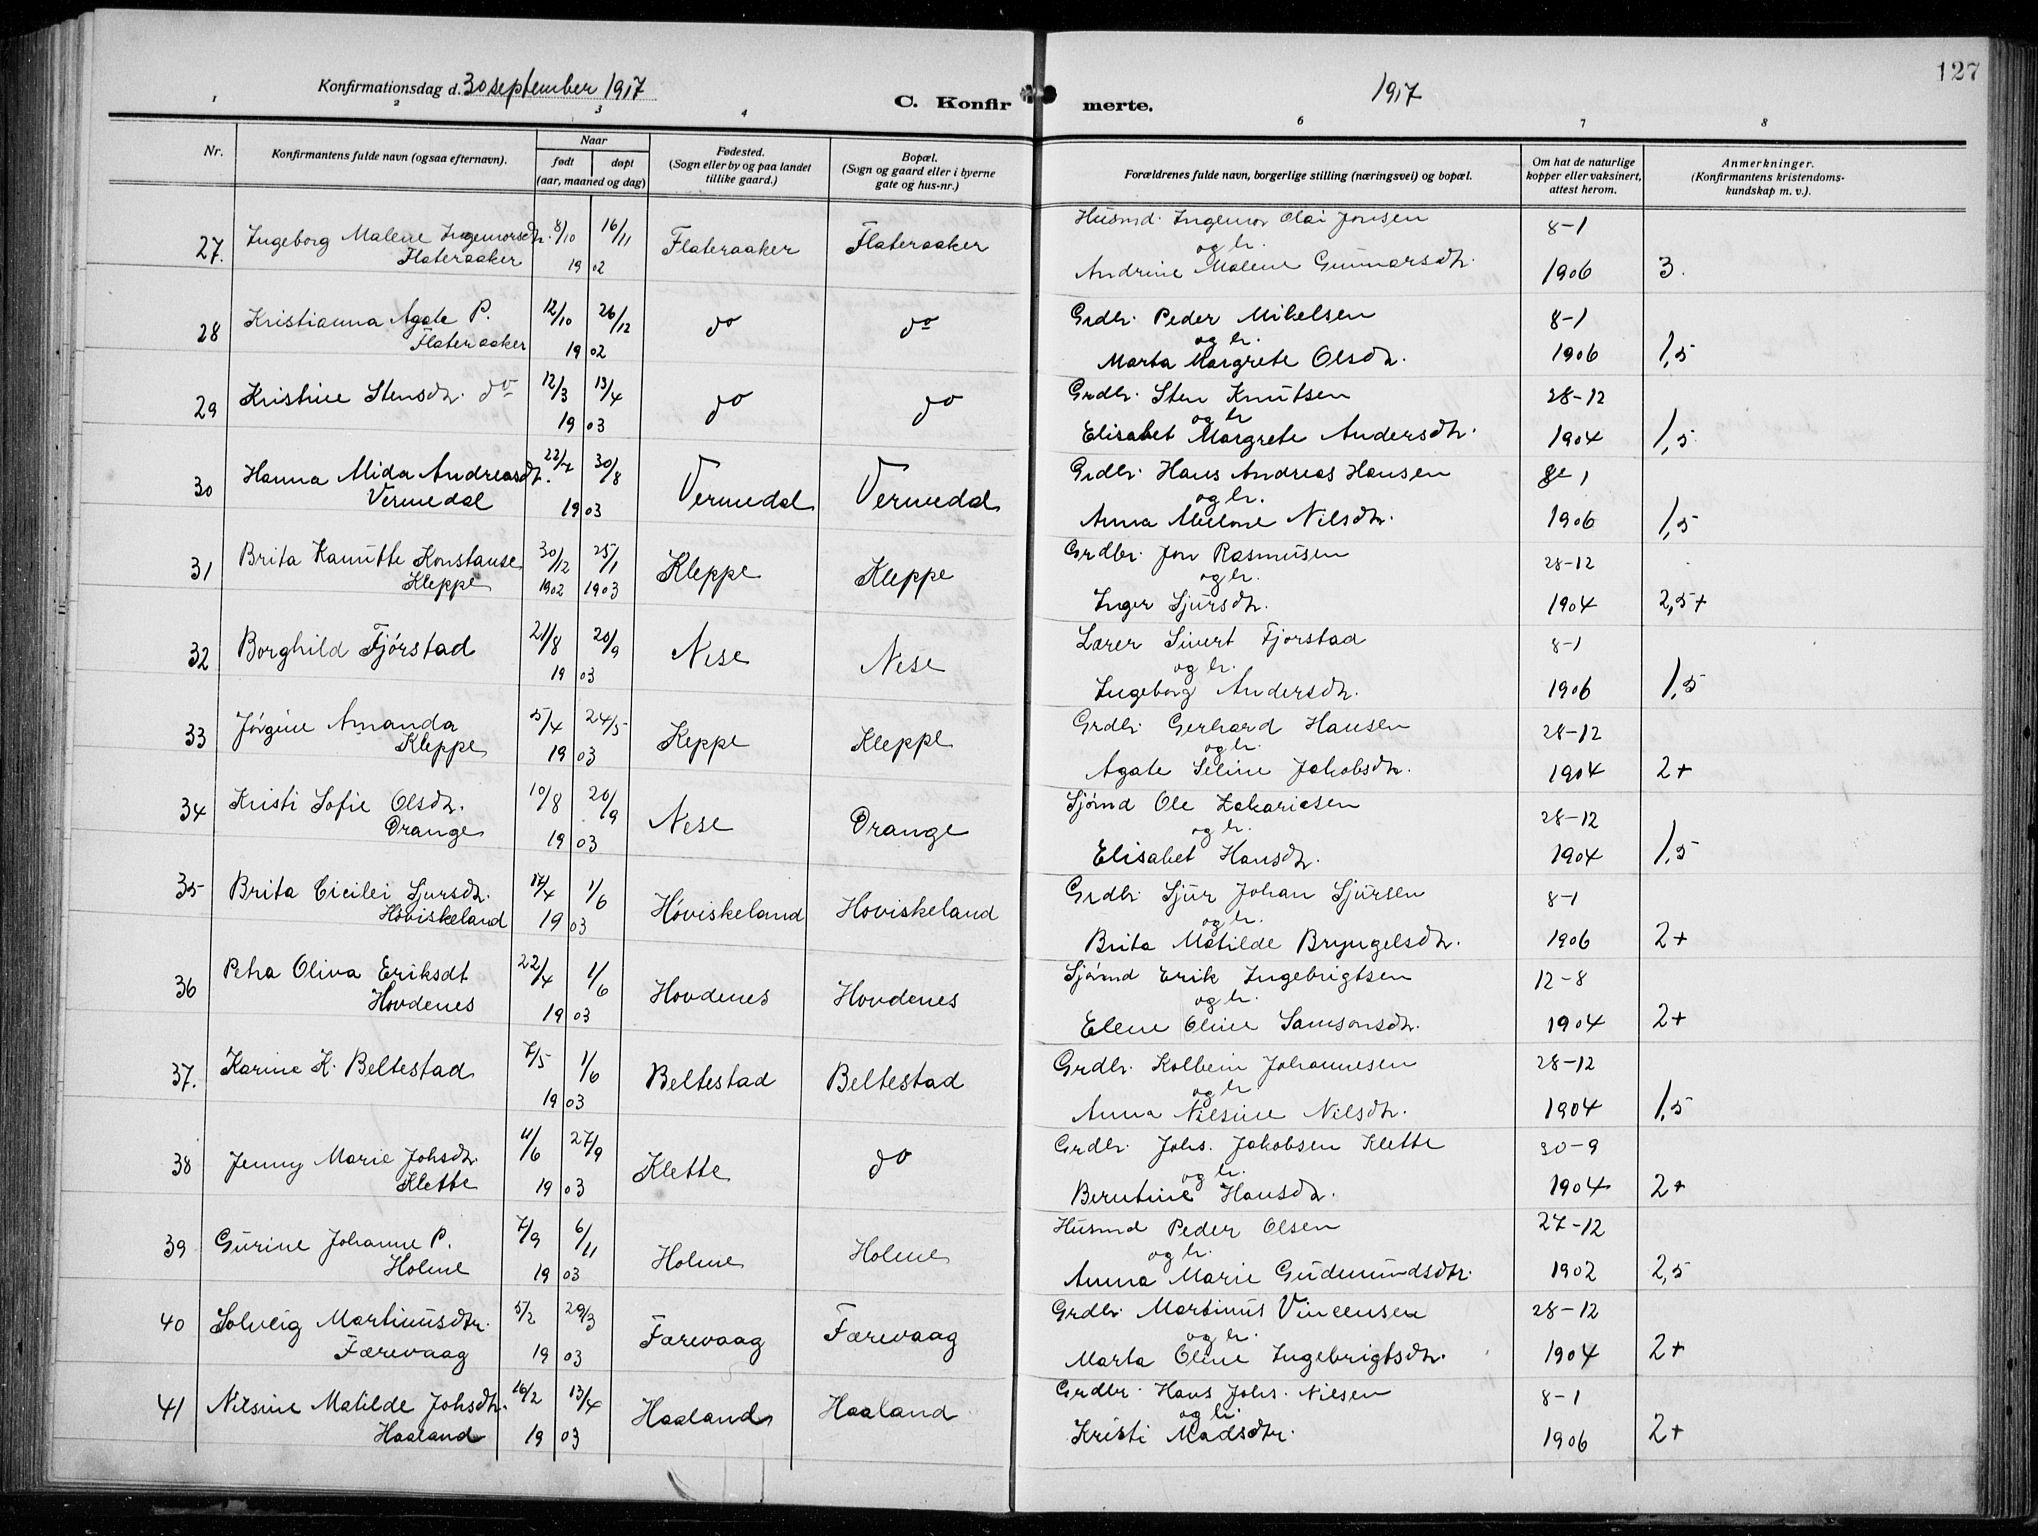 127
Konfirmationsdag d. 30 september 1917
1917
C. Konfir merte.
1 2 3 4 6 7 8
Nr.
Konfirmantens fulde navn (ogsaa efternavn).
Naar
født døpt
(aar, maaned og dag)
Fødested.
(Sogn eller by og paa landet
tillike gaard.)
Bopæl.
(Sogn og gaard eller i byerne
gate og hus-nr.)
Forældrenes fulde navn, borgerlige stilling (næringsvei) og bopæl.
Om hat de naturlige
kopper eller vaksinert,
attest herom.
Anmerkninger.
(Konfirmantens kristendoms-
kundskap m. v.)
27. Ingeborg Malene Ingemorsdtr. 8/10 16/11 Flateraaker Flateraaker Husmd. Ingemor Olai Jonsen 8-1
Flateraaker 19 02 og h. Andrine Malene Gunnarsdtr. 1906 3.
28 Kristianna Agate P. 12/10 26/12 do do Grdbr. Peder Mikelsen 8-1
Flateraaker 19 02 og h. Marta Margrete Olsdtr. 1906 1,5
29 Kristine Stensdtr. do 12/3 13/4 do do Grdbr. Sten Knutsen 28-12
19 03 og h. Elisabet Margrete Andersdtr. 1904 1,5
30 Hanna Mida Andreasdtr. 22/7 30/8 Vermedal Vermedal Grdbr. Hans Andreas Hansen 8-1
Vermedal 19 03 og h. Anna Nilsdtr. 1906 1,5
31 Brita Kanutte Konstanse 30/12 25/1 Kleppe Kleppe Grdbr. Jon Rasmusen 28-12
Kleppe 1902 1903 og h. Inger Sjursdtr. 1904 2,5+
32 Borghild Fjørstad 21/8 20/9 Nese Nese Lærer Sivert Fjørstad 8-1
19 03 og h. Ingeborg Andersdtr. 1906 1,5
33 Jørgine Amanda 5/4 24/5 Keppe Kleppe Grdbr. Gerhard Hansen 28-12
Kleppe 19 03 og h. Agate Seline Jakobsdtr. 1904 2+
34 Kristi Sofie Olsdtr. 10/8 20/9 Nese Drange Sjømd Ole Zakariasen 28-12
Drange 19 03 og h. Elisabet Hansdtr. 1904 1,5
35 Brita Cicilei Sjursdtr. 17/4 1/6 Høviskeland Hoviskeland Grdbr. Sjur Johan Sjursen 8-1
Høviskeland 19 03 og h. Brita Matilde Bryngelsdtr. 1906 2+
36 Petra Oliva Eriksdt 22/4 1/6 Hovdenes Hovdenes Sjømd Erik Ingebrigtsen 12-8
Hovdenes 19 03 og h. Elene Oline Samsonsdtr. 1904 2+
37. Karine K. Beltestad 7/5 1/6 Beltestad Beltestad Grdbr. Kolbein Johannesen 28-12
19 03 og h. Anna Nilsine Nilsdtr. 1904 1,5
38 Jenny Marie Johsdtr. 11/6 27/9 Klette do Grdbr. Johs. Jakobsen Klette 30-9
Klette 19 03 og h. Berntine Hansdtr. 1904 2+
39 Gurine Johanne P. 7/9 6/11 Holme Holme Husmd Peder Olsen 27-12
Holme 19 03 og h. Anna Marie Gudmundsdtr. 1902 2,5
40 Solveig Martinusdtr. 5/2 29/3 Færevaag Færevaag Grdbr. Martinus Vincensen 28-12
Færevaag 19 03 og h. Marta Oline Ingebrigtsdtr. 1904 2+
41 Nilsine Matilde Johsdtr. 16/2 13/4 Haaland Haaland Grdbr. Hans Johs. Nilsen 8-1
Haaland 19 03 og h. Kristi Madsdtr. 1906 2+